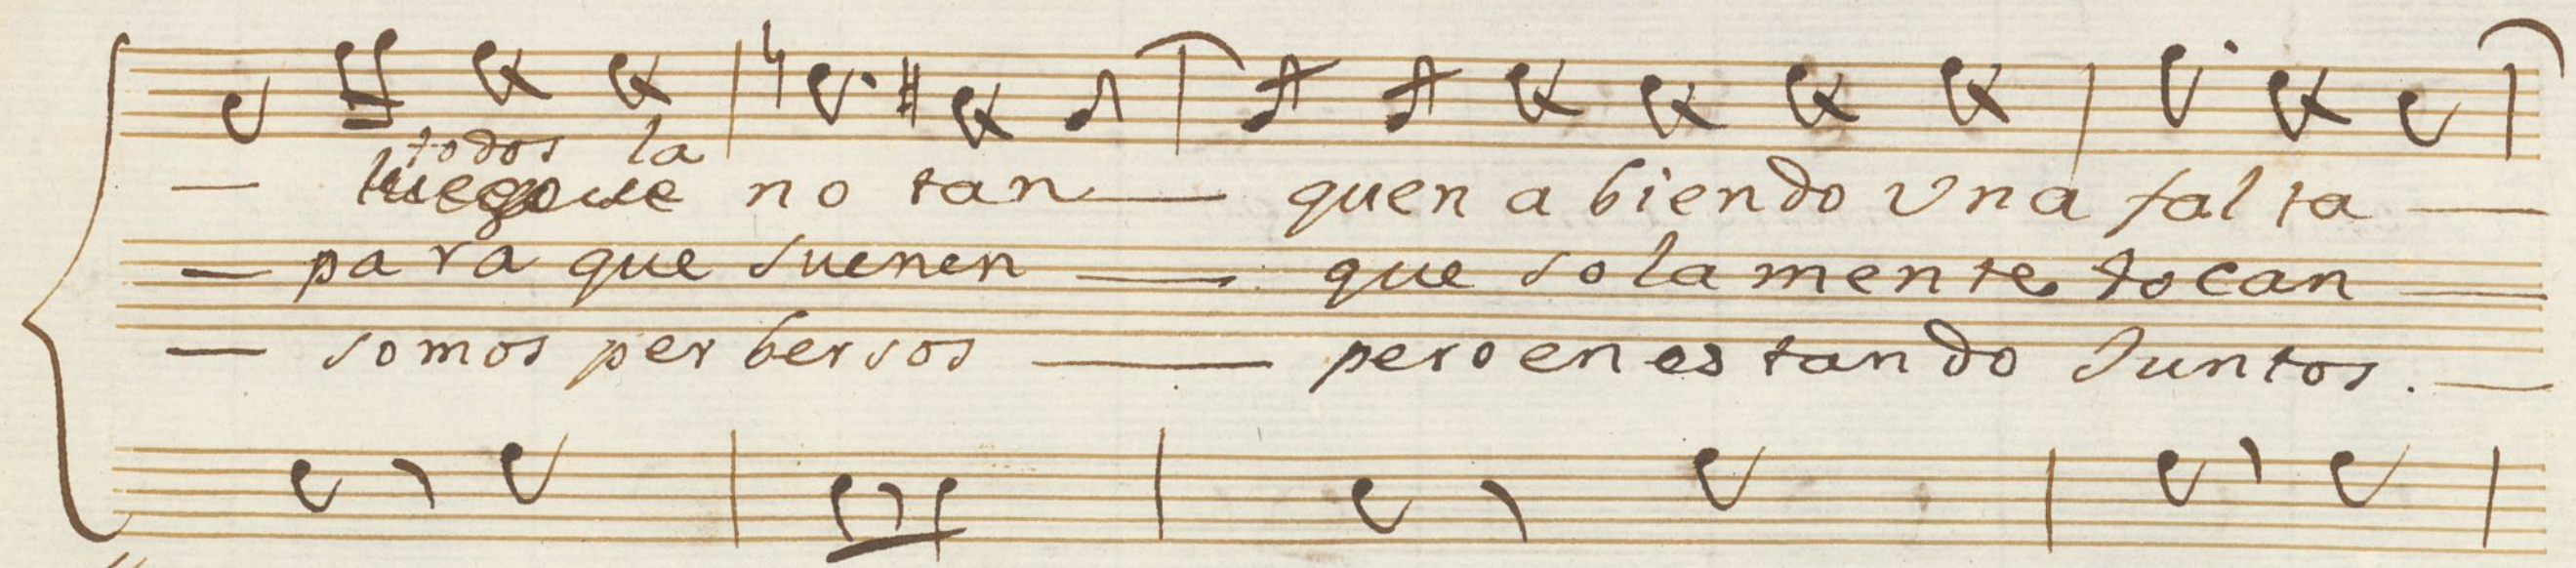 todos la
luego que no tan — quen a biendo vna falta —
— para que suenen — que solamente tocan —
— somos perbersos — pero en estando Juntos. —